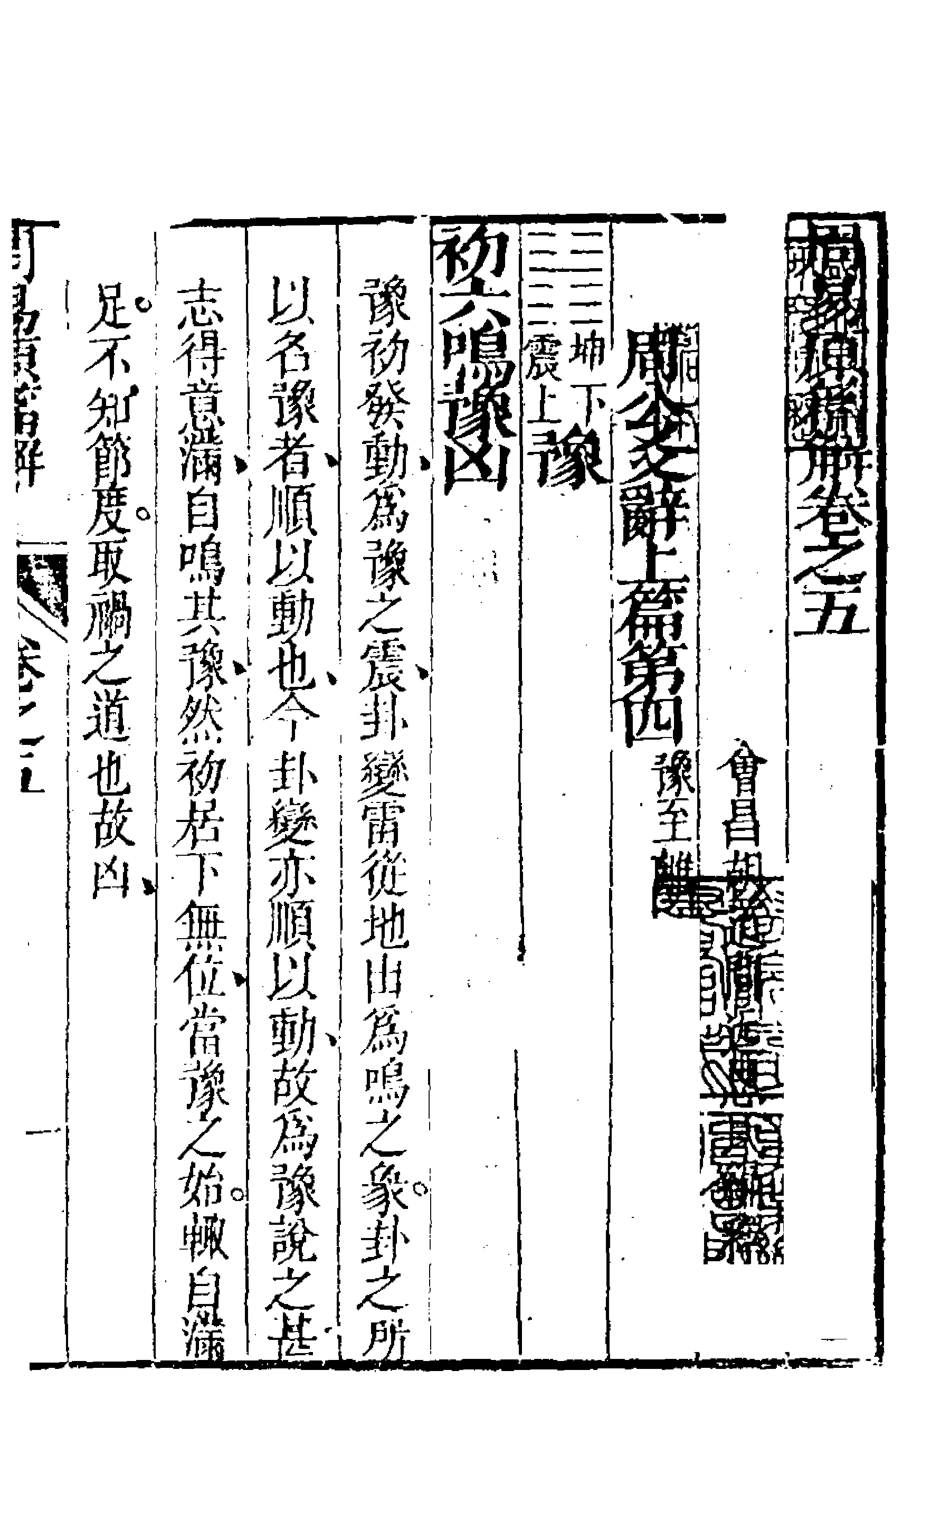 周易原意解卷之五
會昌胡
周公爻辭上篇第四 豫至離
坤下
震上 豫
初六鳴豫凶
豫初發動為豫之震卦變雷從地由為鳴之象卦之所
以名豫者順以動也今卦變亦順以動故為豫說之甚
志得意滿自鳴其豫然初居下無位當豫之始輙自滿
足不知節度取禍之道也故凶
卷之五